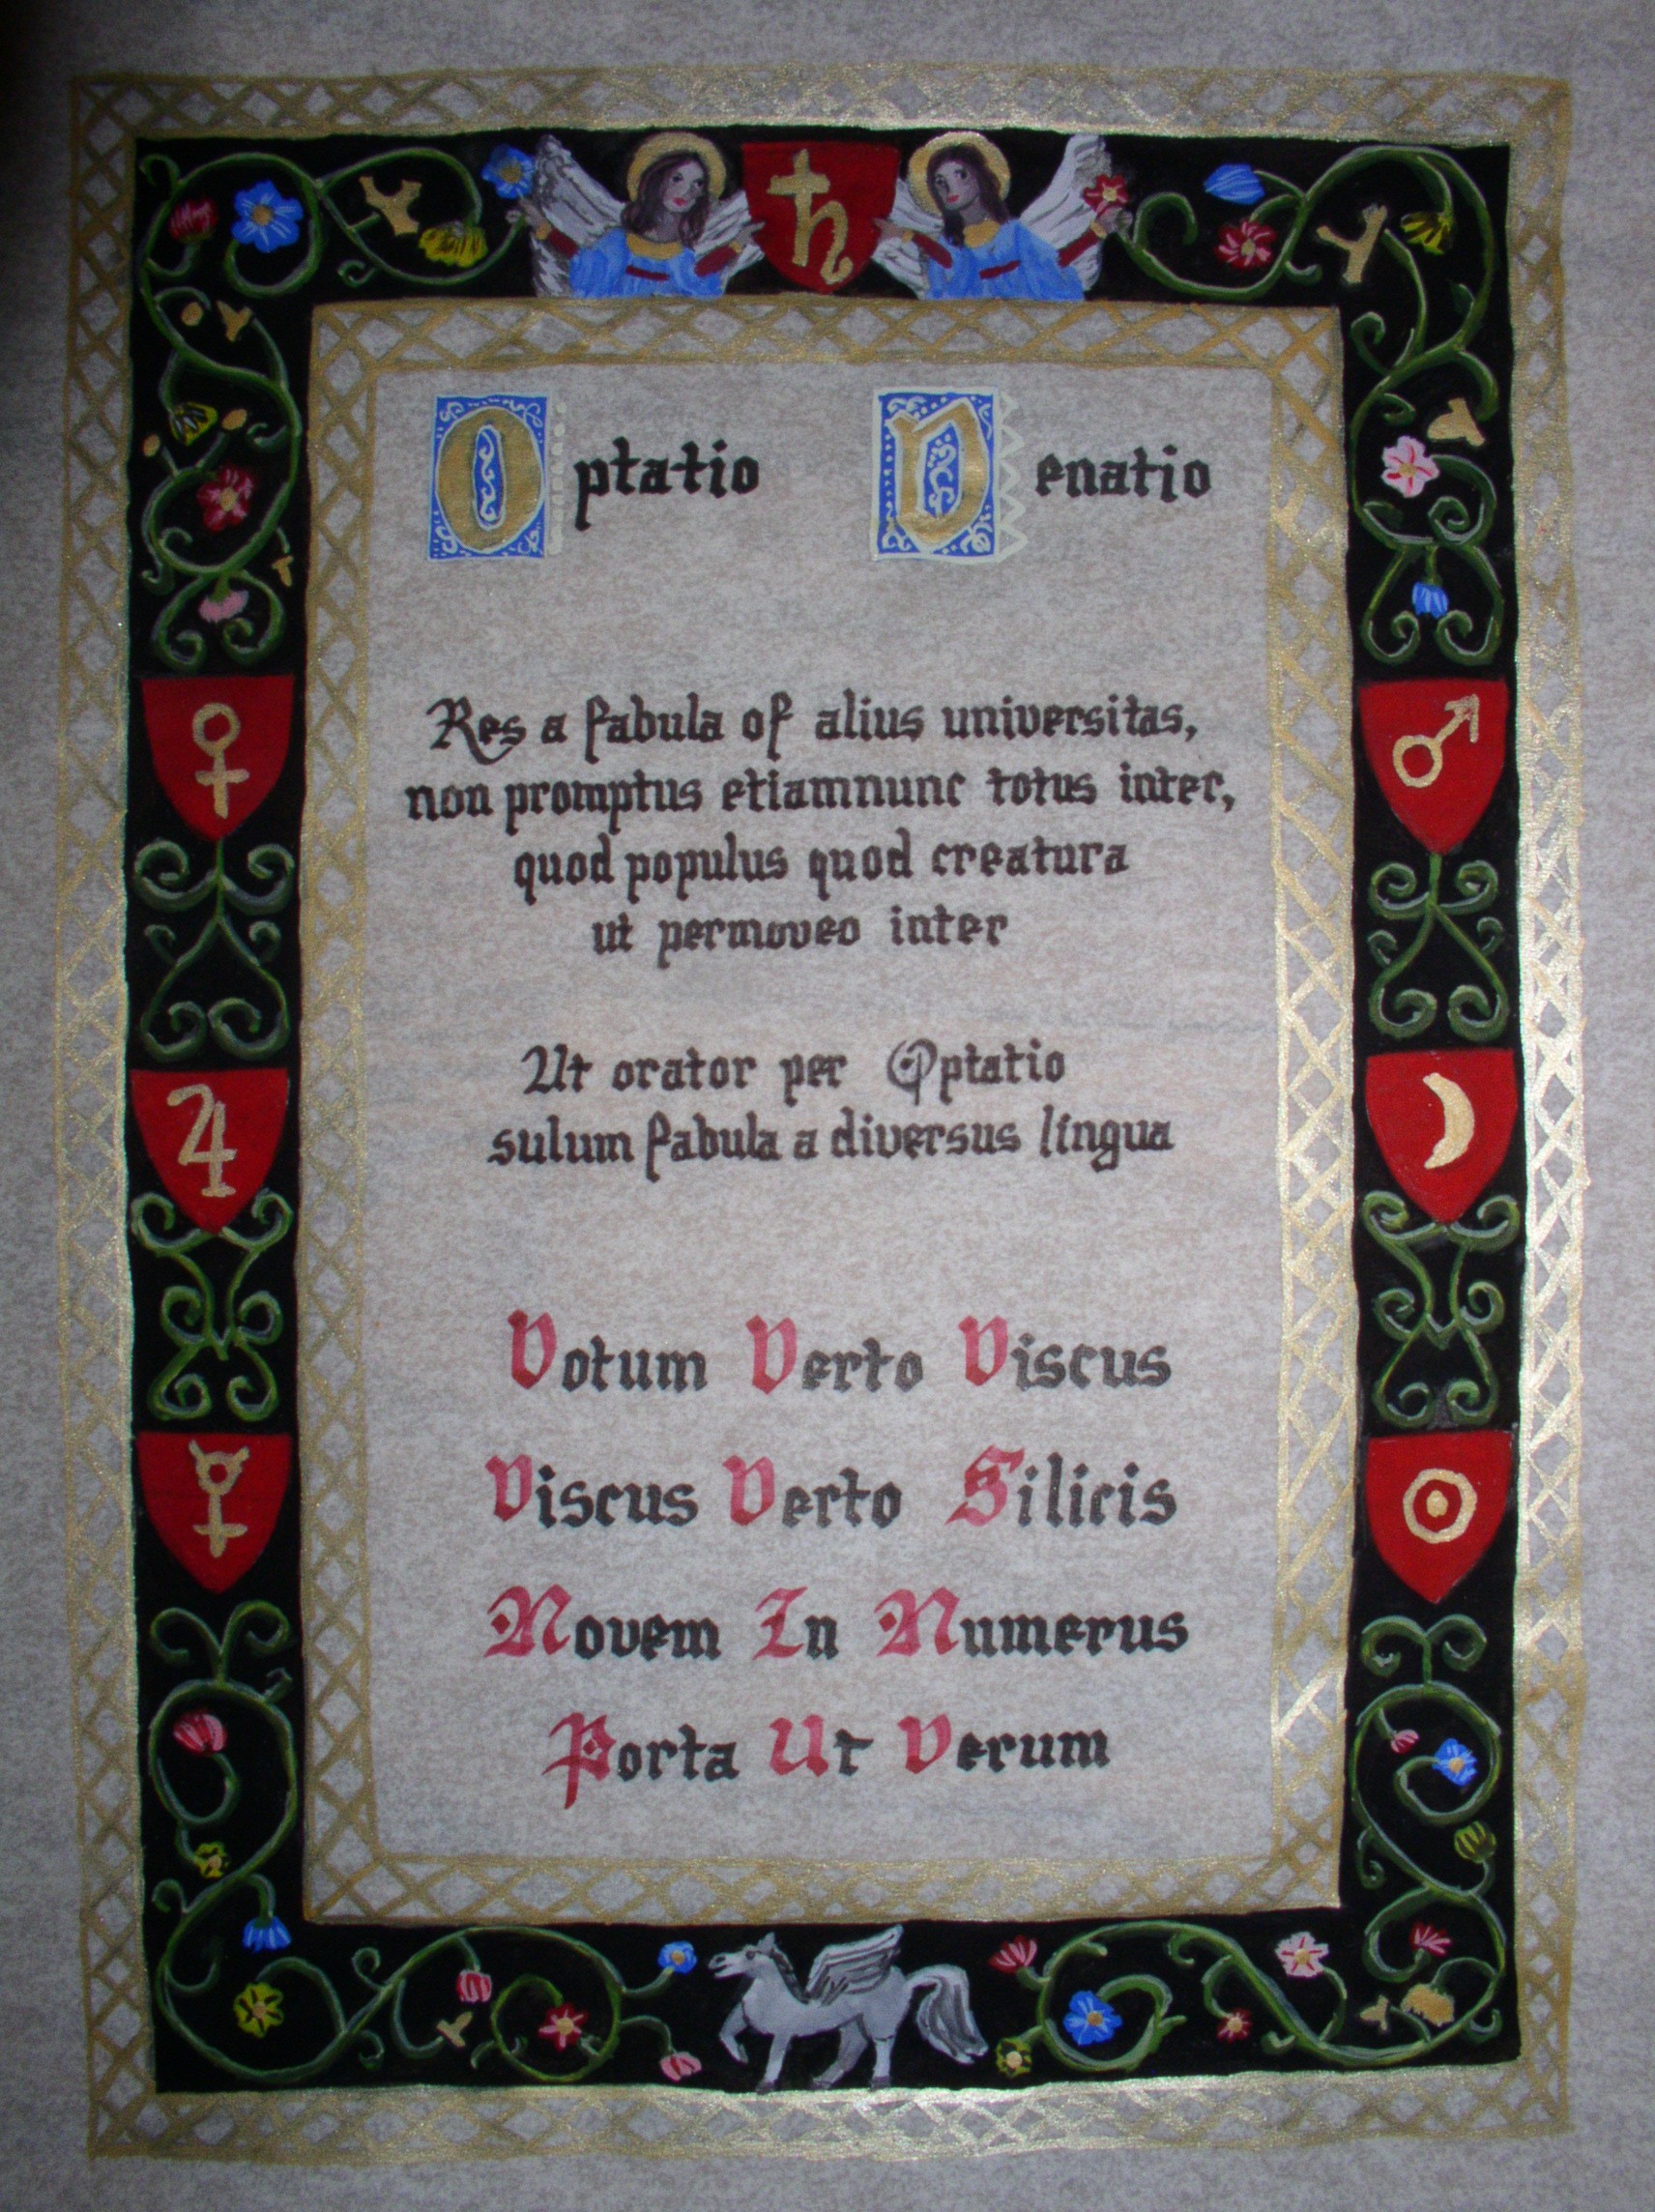 Optatio Venatio
Res a fabula of alius universitas,
non promptus etiamnunc totus inter,
quod populus quod creatura
ut permoveo inter
Ut orator per Optatio
sulum fabula a diversus lingua
Votum Verto Viscus
Viscus Verto Silicis
Novem In Numerus
Porta Ut Verum